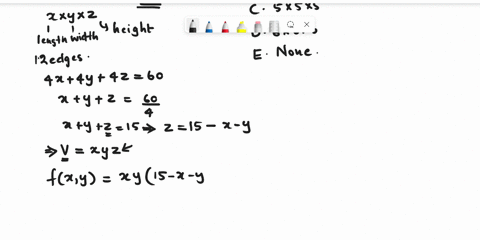 x×y×z
length width height
12 edges.
4x+4y+4z=60
x+y+z = 60/4
x+y+z=15 ⇒ z=15-x-y
⇒ V = xyz
f(x,y) = xy(15-x-y
C. 5×5×5
E. None.